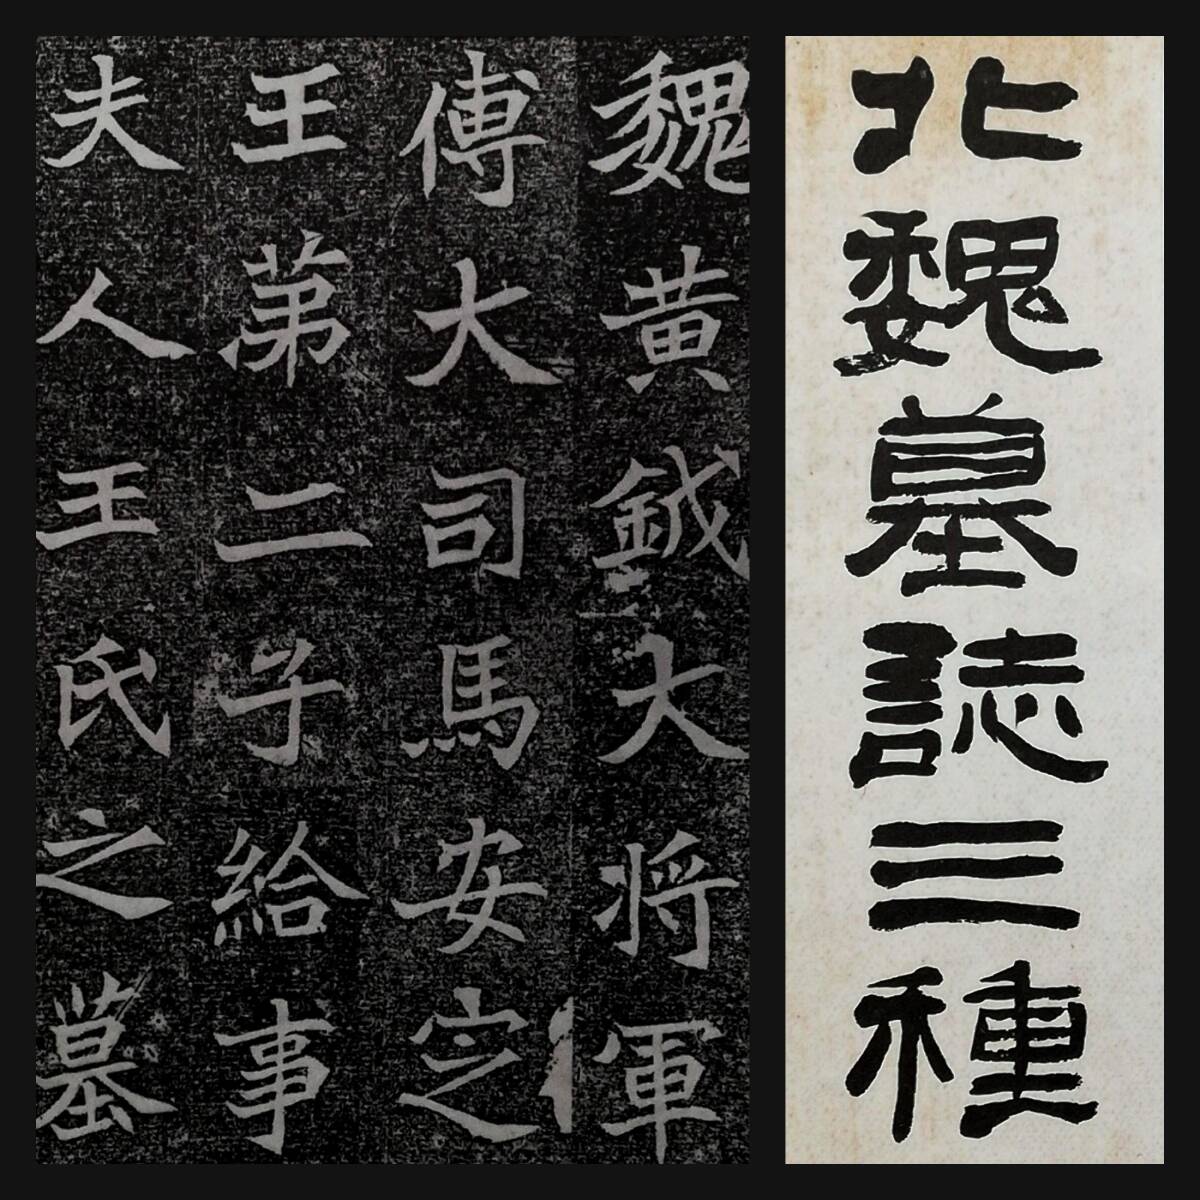 北魏墓誌三種
魏黄鉞大将軍
傅大司馬安定
王第二子給事
夫人王氏之墓